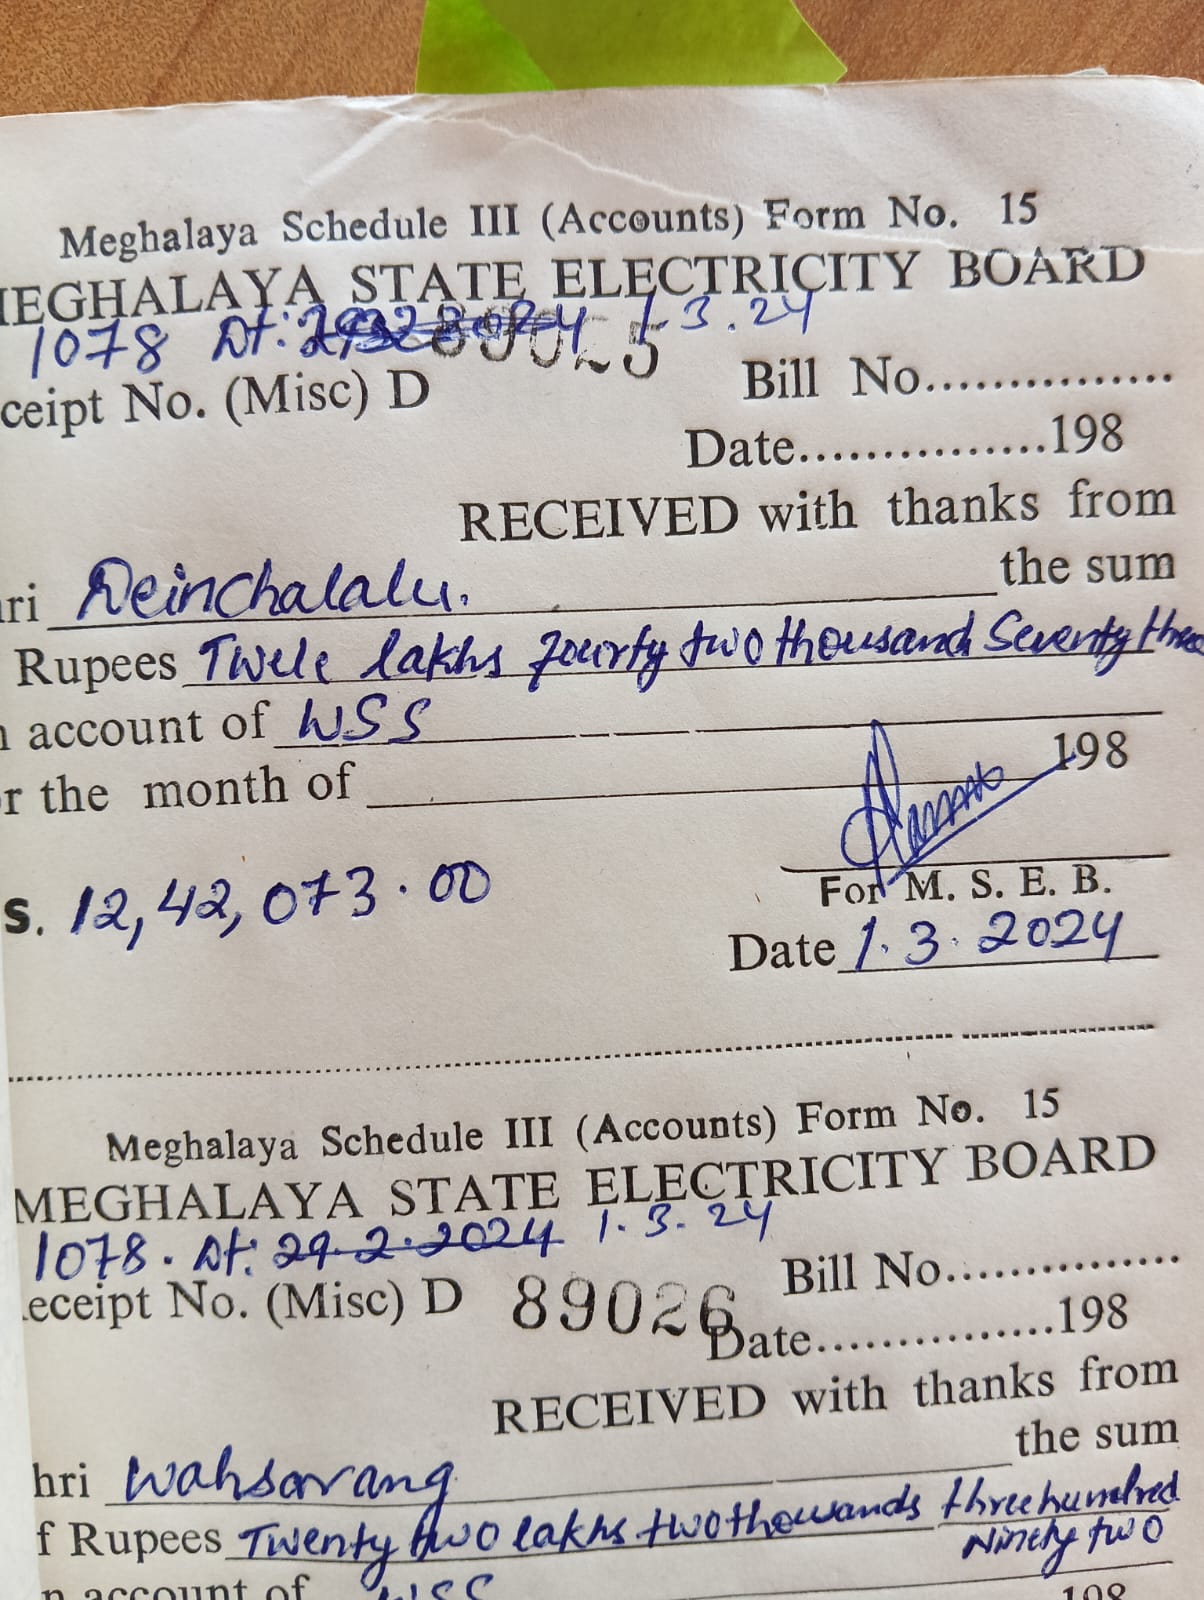 Meghalaya Schedule III (Accounts) Form No. 15
MEGHALAYA STATE ELECTRICITY BOARD
1078 Dt: 1.3.24
ceipt No. (Misc) D 89025 Bill No...............
Date...............198
RECEIVED with thanks from
ri Deinchalalu. the sum
Rupees Twele lakhs fourty two thousand Seventy three
n account of WSS
r the month of 198
s. 12,42,073.00
For M. S. E. B.
Date 1.3.2024
Meghalaya Schedule III (Accounts) Form No. 15
MEGHALAYA STATE ELECTRICITY BOARD
1078. Dt: 29.2.2024 1.3.24
eceipt No. (Misc) D 89026 Bill No...............
Date...............198
RECEIVED with thanks from
hri Wahsarang the sum
f Rupees Twenty two lakhs two thousands three hundred
Ninety two
n account of WSS 198